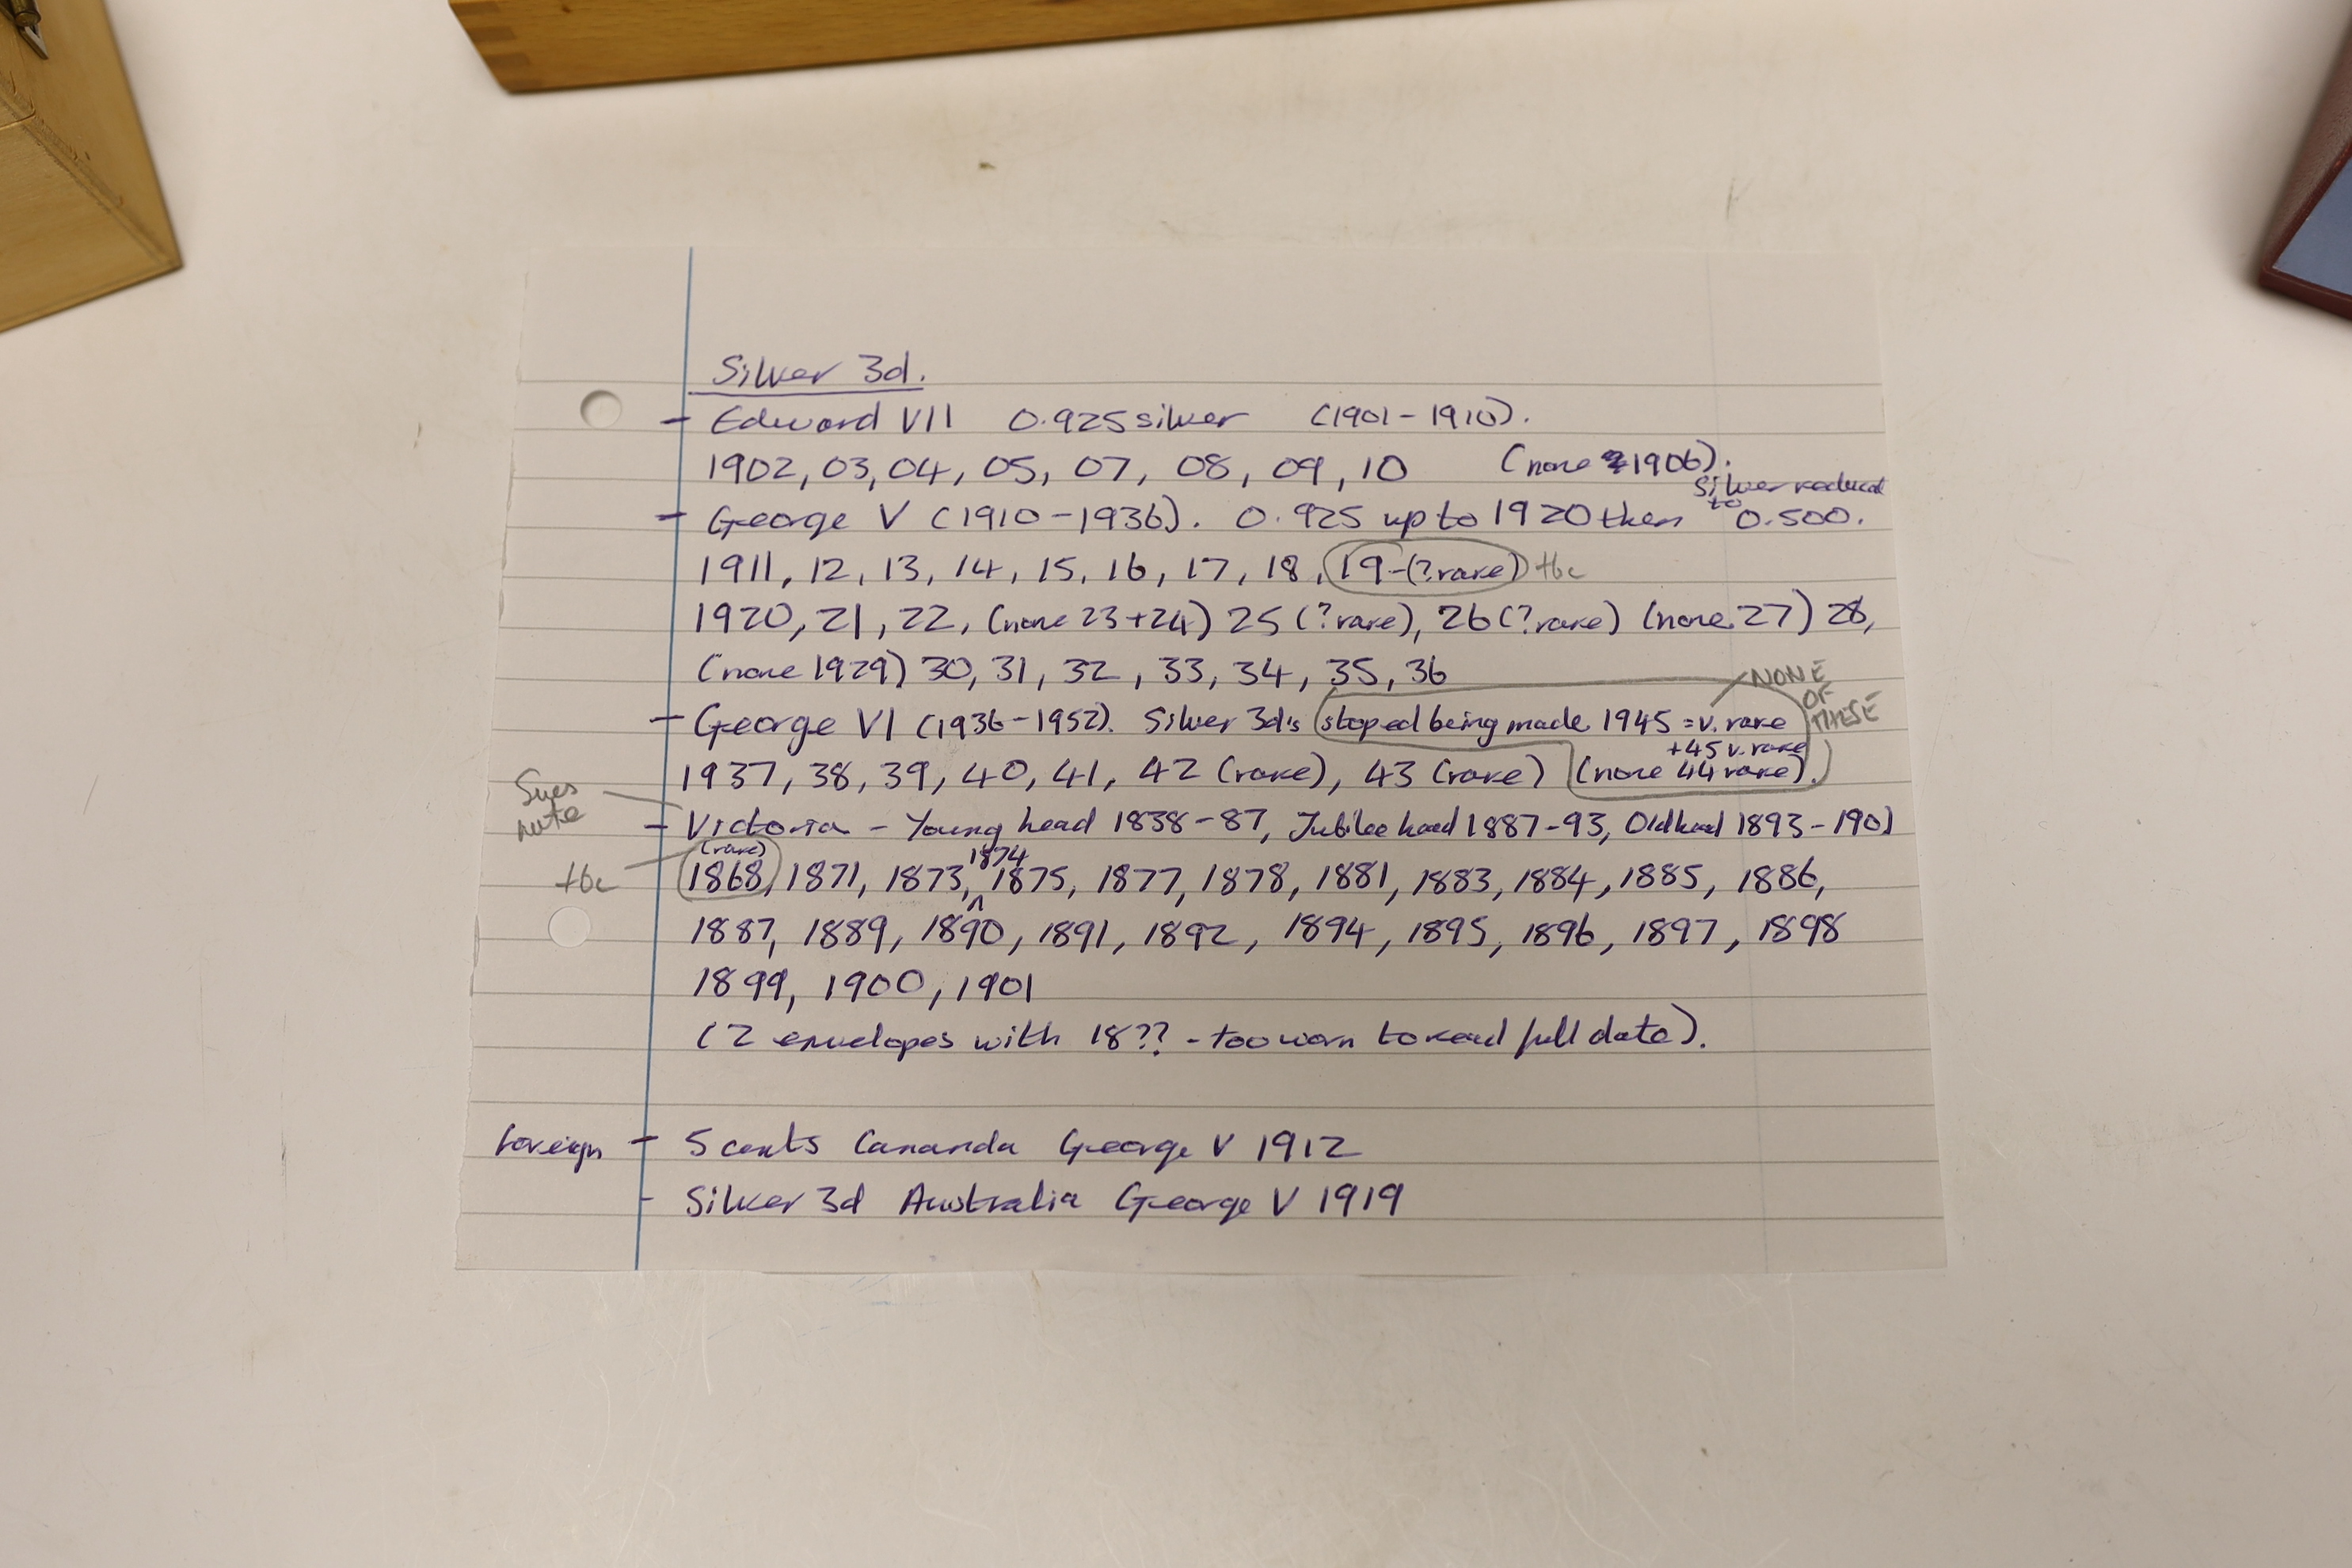 Silver 3d.
- Edward VII 0.925 silver (1901-1910).
1902, 03, 04, 05, 07, 08, 09, 10 (none 1906).
- George V (1910-1936). 0.925 up to 1920 then silver reduced to 0.500.
1911, 12, 13, 14, 15, 16, 17, 18, 19-(?rare) tbc
1920, 21, 22, (none 23+24) 25 (?rare), 26 (?rare) (none 27) 28,
(none 1929) 30, 31, 32, 33, 34, 35, 36
NONE OF THESE
- George VI (1936-1952). Silver 3d's stoped being made 1945 = v. rare
+45 v. rare
1937, 38, 39, 40, 41, 42 (rare), 43 (rare) (none 44 rare).
Sues note
- Victoria - Young head 1838-87, Jubilee head 1887-93, Old head 1893-1901
(rare)
tbc 1868, 1871, 1873, 1874 1875, 1877, 1878, 1881, 1883, 1884, 1885, 1886,
1887, 1889, 1890, 1891, 1892, 1894, 1895, 1896, 1897, 1898
1899, 1900, 1901
(2 envelopes with 18?? - too worn to read full date).
foreign - 5 cents Cananda George V 1912
- Silver 3d Australia George V 1919